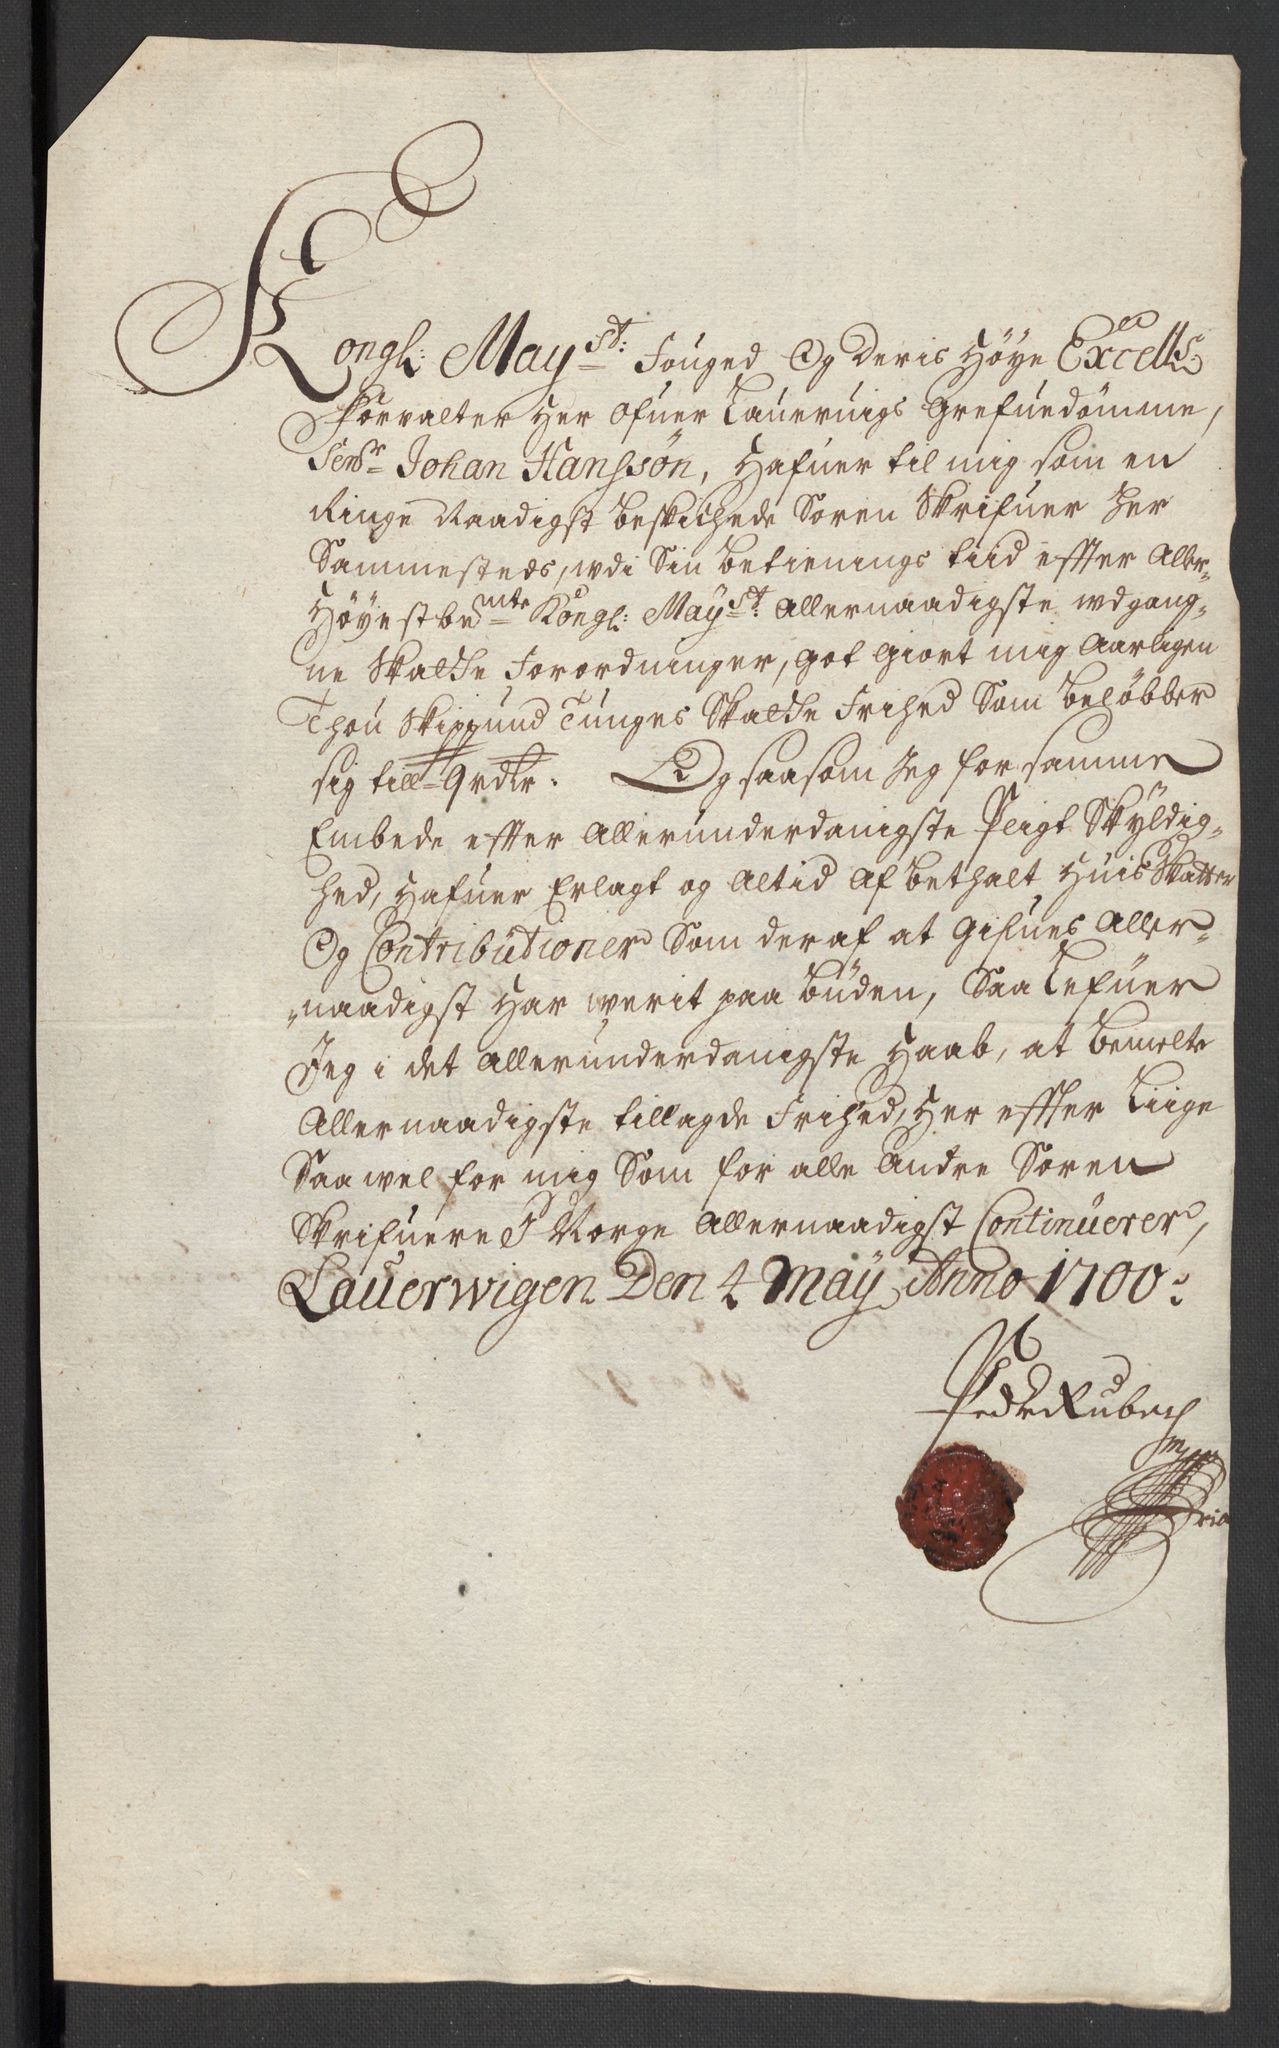 Kongl: May:st: Fouged Og Deris Höye Excell:s:
Forvalter Her Ofuer Lauervigs Grefuedömme,
Senr Johan Hanssön, Hafuer til mig som en
Ringe Naadigst beskichede Soren Skrifuer Her
Sammesteds, wdi Sin betienings tiid effter Aller-
Höyestbemte Kongl: Maÿst: Allernaadigste wdgang-
ne Skatte Forordninger, got giort mig Aarligen
Thou Skippund Tunges Skatte Frihed Som beløbber
sig till 9 rdlr. Og saasom Jeg for samme
Embede effter Allerunderdanigste Pligt Skÿldig-
hed, Hafuer Erlagt og Altid Af bethalt Huis Skatter
Og Contributioner Som deraf at Gifues Aller-
naadigst Har werit paa büden, Saa Lefuer
Jeg i det Allerunderdanigste Haab, at bemelte
Allernaadigste tillagde Frihed, Her effter Liige
Saa wel for mig Som for alle Andre Soren
Skrifuere I Norge Allernaadigst Continüerer,
Lauerwigen Den 4 Maÿ Anno 1700.
Pedr Rubach
mpria